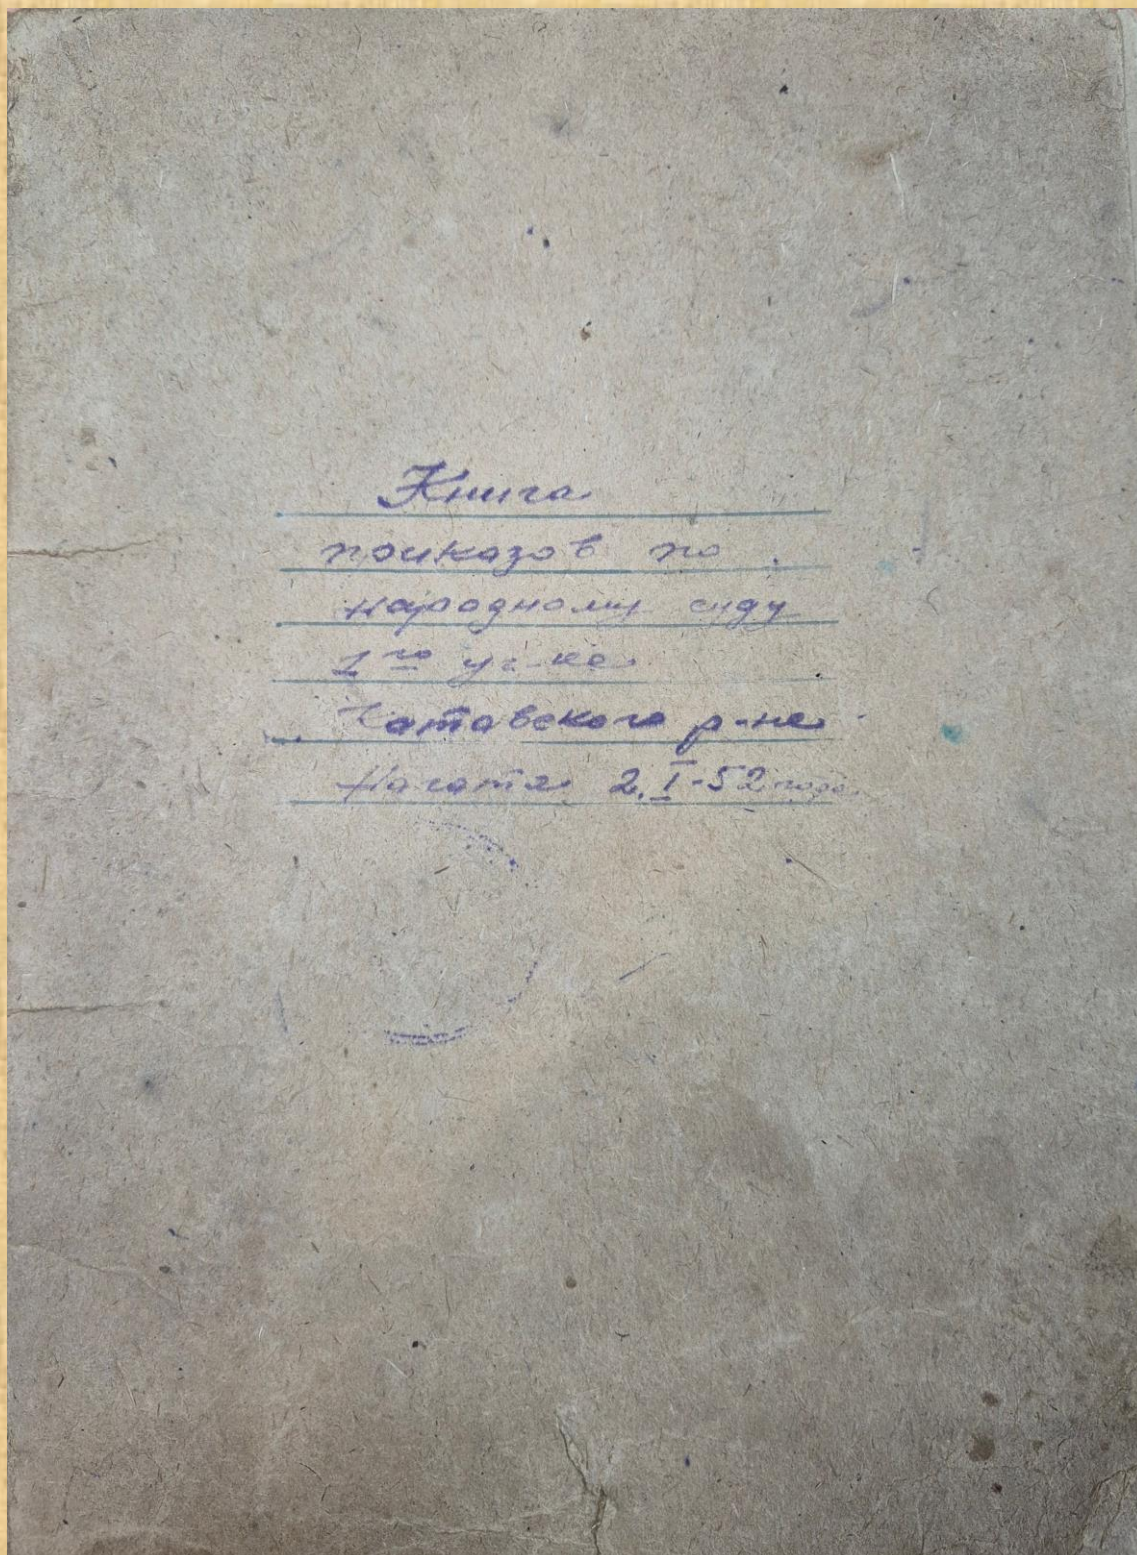 Книга
приказов по
народному суду
1го уч-ка
Катавского р-на
Начата 2.I-52 года